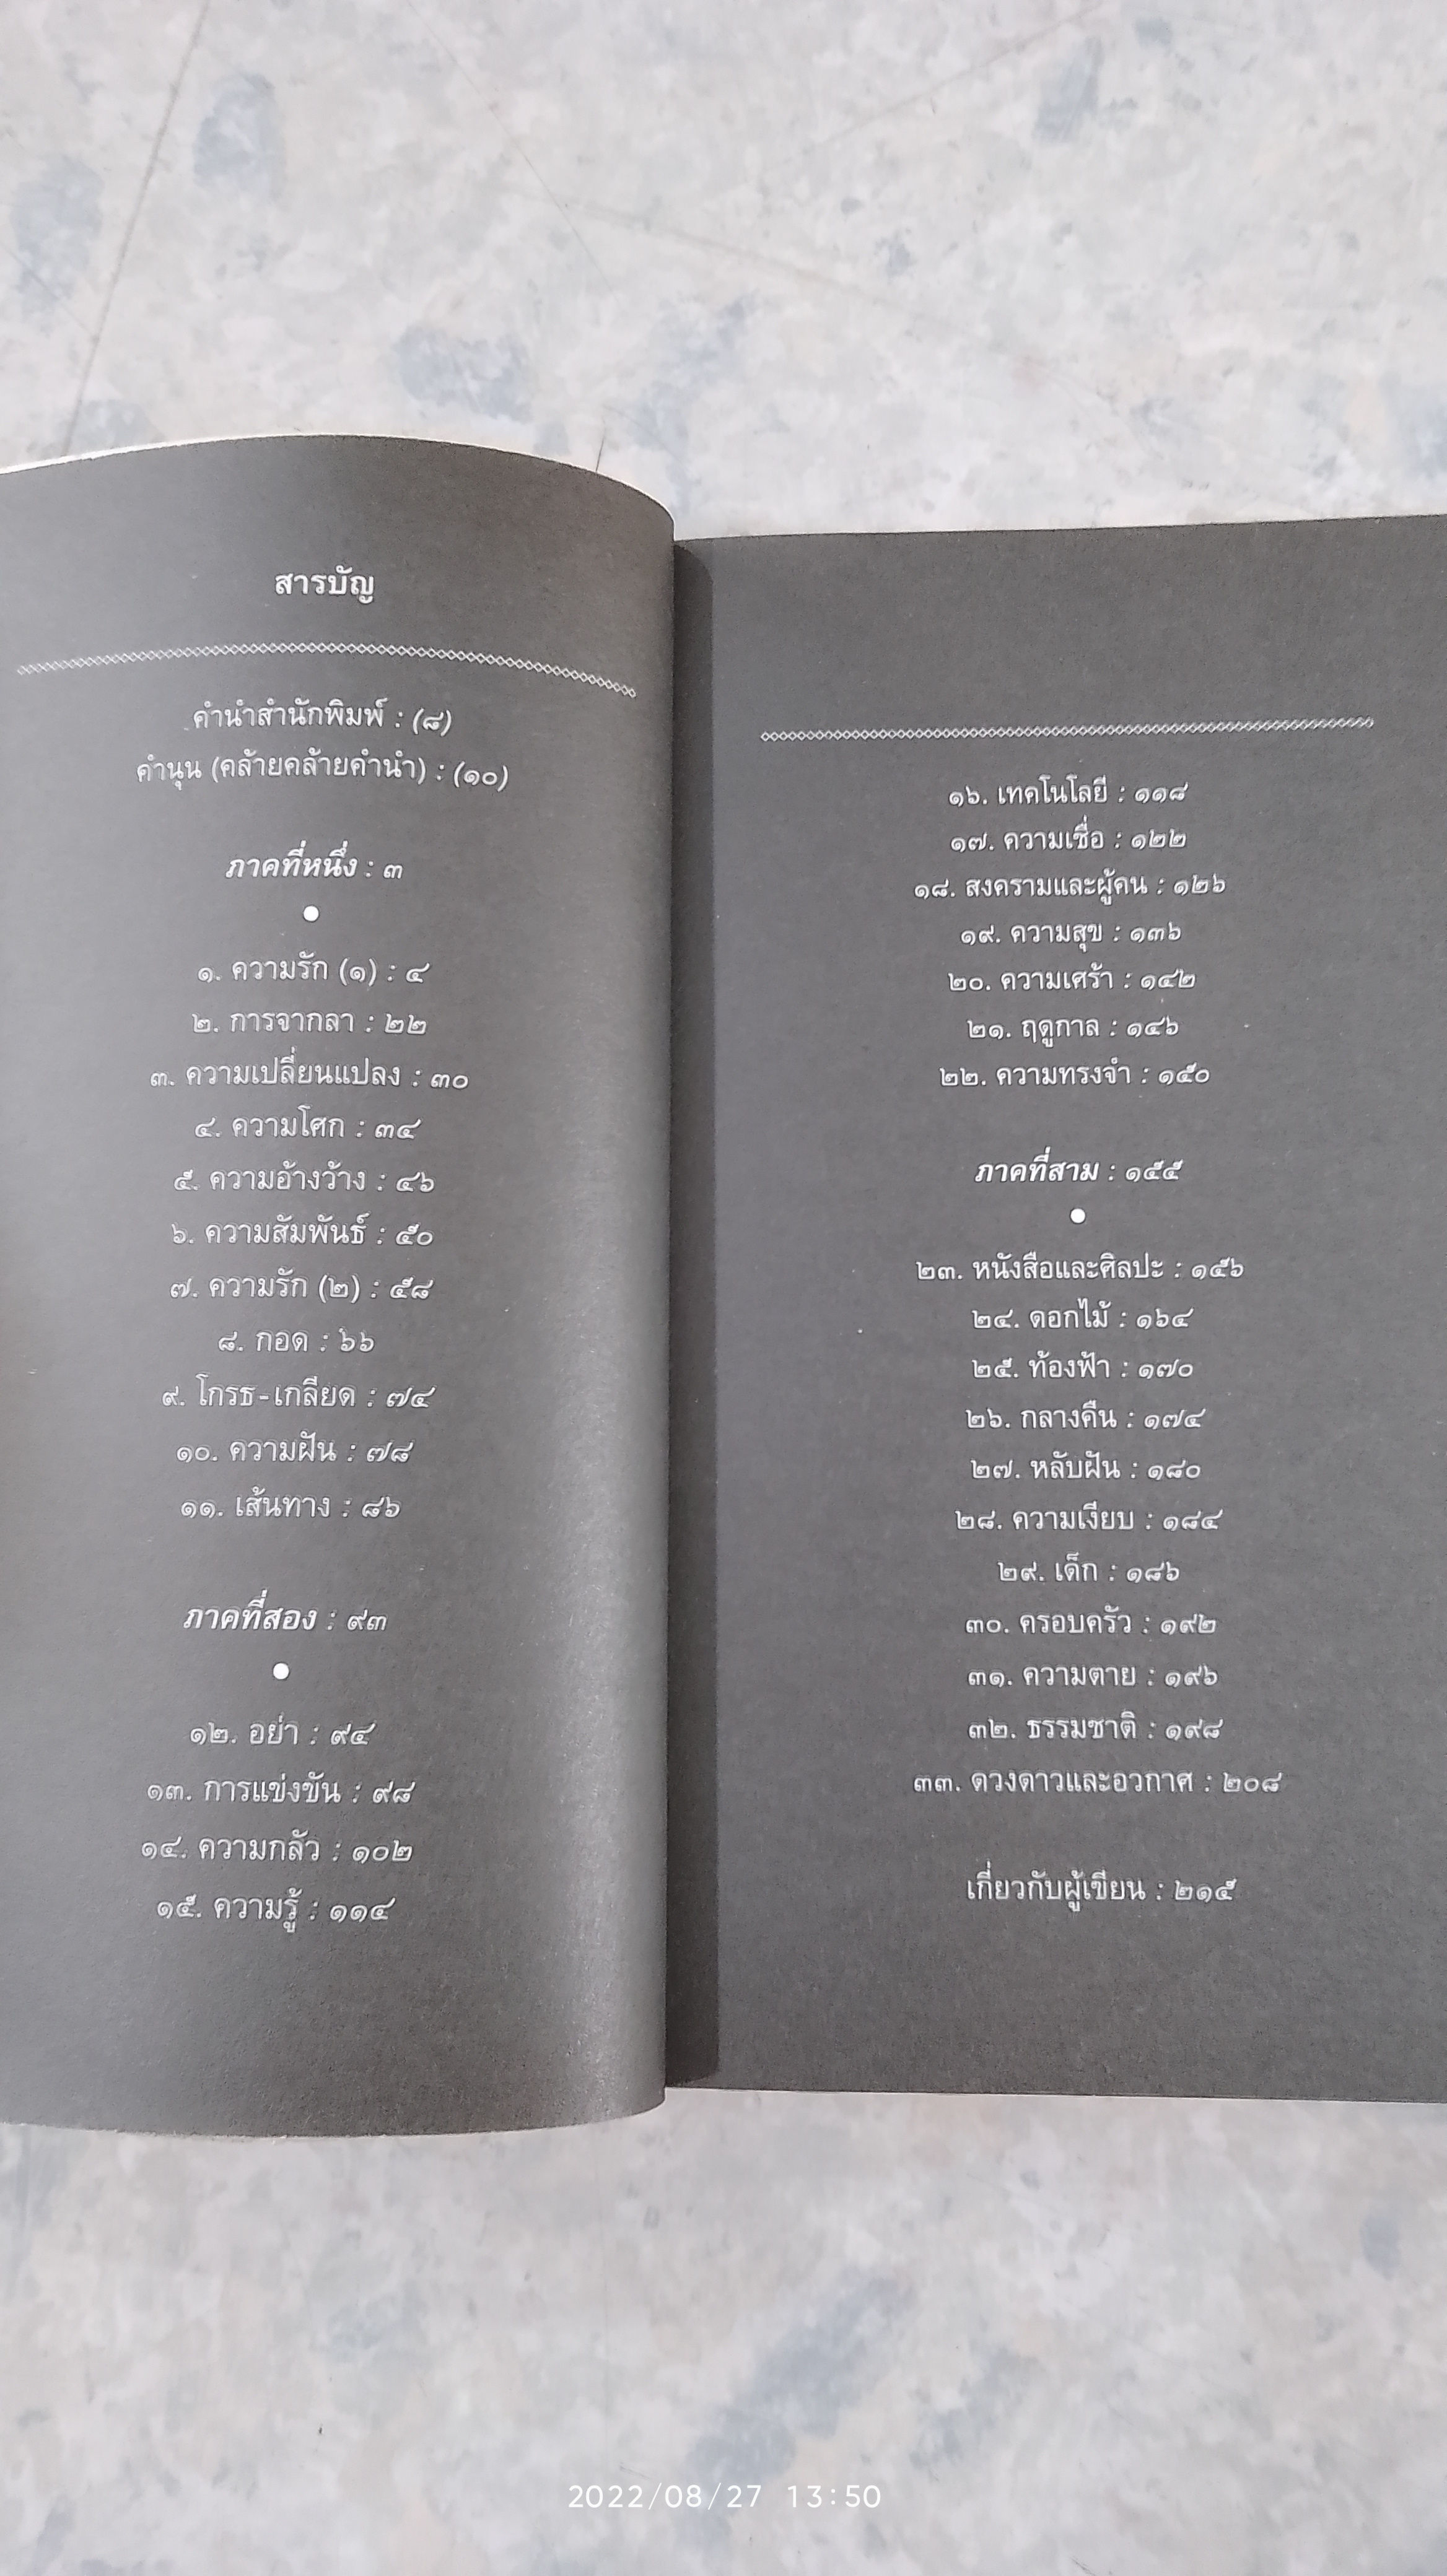 สารบัญ
คำนำสำนักพิมพ์ : (๘)
คำนุน (คล้ายคล้ายคำนำ) : (๑๐)
ภาคที่หนึ่ง : ๓
๑. ความรัก (๑) : ๔
๒. การจากลา : ๒๒
๓. ความเปลี่ยนแปลง : ๓๐
๔. ความโศก : ๓๔
๕. ความอ้างว้าง : ๔๖
๖. ความสัมพันธ์ : ๕๐
๗. ความรัก (๒) : ๕๘
๘. กอด : ๖๖
๙. โกรธ-เกลียด : ๗๔
๑๐. ความฝัน : ๗๘
๑๑. เส้นทาง : ๘๖
ภาคที่สอง : ๙๓
๑๒. อย่า : ๙๔
๑๓. การแข่งขัน : ๙๘
๑๔. ความกลัว : ๑๐๒
๑๕. ความรู้ : ๑๑๔
๑๖. เทคโนโลยี : ๑๑๘
๑๗. ความเชื่อ : ๑๒๒
๑๘. สงครามและผู้คน : ๑๒๖
๑๙. ความสุข : ๑๓๖
๒๐. ความเศร้า : ๑๔๒
๒๑. ฤดูกาล : ๑๔๖
๒๒. ความทรงจำ : ๑๕๐
ภาคที่สาม : ๑๕๕
๒๓. หนังสือและศิลปะ : ๑๕๖
๒๔. ดอกไม้ : ๑๖๔
๒๕. ท้องฟ้า : ๑๗๐
๒๖. กลางคืน : ๑๗๔
๒๗. หลับฝัน : ๑๘๐
๒๘. ความเงียบ : ๑๘๔
๒๙. เด็ก : ๑๘๖
๓๐. ครอบครัว : ๑๙๒
๓๑. ความตาย : ๑๙๖
๓๒. ธรรมชาติ : ๑๙๘
๓๓. ดวงดาวและอวกาศ : ๒๐๘
เกี่ยวกับผู้เขียน : ๒๑๕
2022/08/27 13:50